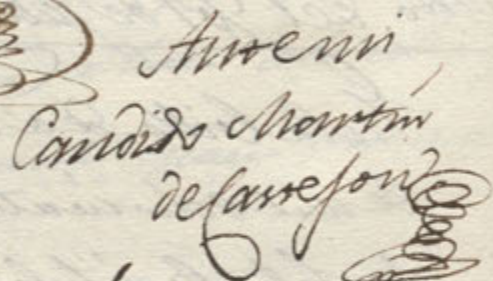 Ante mi
Candido Martin
de Castejon